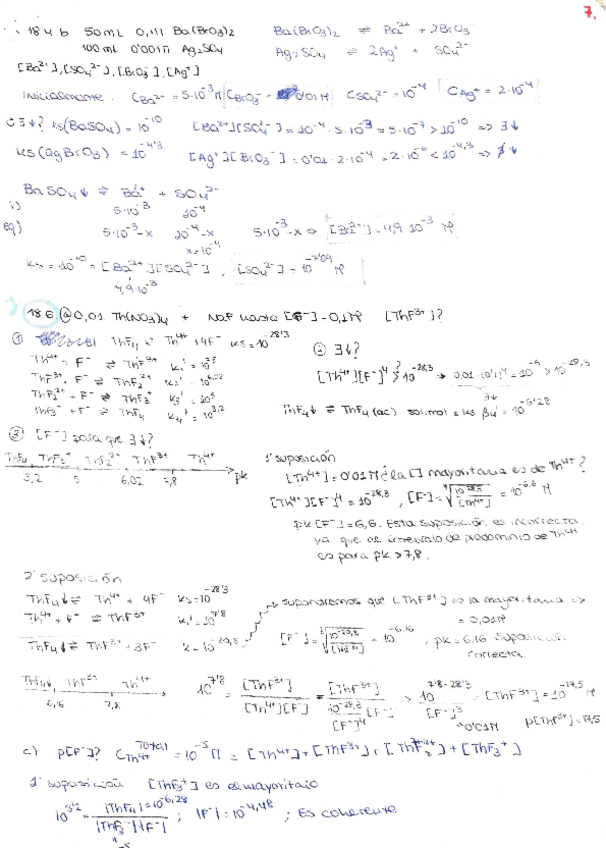 7.
18.4.b 50mL 0,1M Ba(BrO3)2 Ba(BrO3)2 ⇌ Ba2+ + 2BrO3-
100mL 0'001M Ag2SO4 Ag2SO4 ⇌ 2Ag+ + SO4 2-
[Ba2+],[SO4 2-],[BrO3-],[Ag+]
Inicialmente. CBa2+ = 5·10^-3 M CBrO3- = 0'01M CSO4 2- = 10^-4 CAg+ = 2·10^-4
¿∃↓? Ks(BaSO4) = 10^-10 [Ba2+][SO4 2-] = 10^-4 · 5·10^-3 = 5·10^-7 > 10^-10 => ∃↓
Ks(AgBrO3) = 10^-4'3 [Ag+][BrO3-] = 0'01·2·10^-4 = 2·10^-6 < 10^-4,3 => ∄↓
BaSO4↓ ⇌ Ba2+ + SO4 2-
i) 5·10^-3 10^-4
eq) 5·10^-3-x 10^-4-x 5·10^-3-x => [Ba2+] = 4,9·10^-3 M
x=10^-4
Ks = 10^-10 = [Ba2+][SO4 2-], [SO4 2-] = 10^-7'69 M
4,9·10^-3
18.6 @ 0,01 Th(NO3)4 + NaF hasta [F-] = 0,1M [ThF3+]?
① ThF4↓ ⇌ Th4+ + 4F- Ks = 10^-28'3
Th4+ + F- ⇌ ThF3+ K1'
ThF3+ + F- ⇌ ThF2 2+ K2' = 10^6,02
ThF2 2+ + F- ⇌ ThF3+ K3' = 10^5
ThF3+ + F- ⇌ ThF4 K4' = 10^3,2
② ∃↓?
[Th4+][F-]^4 >? 10^-28,3 → 0,01·(0'1)^4 = 10^-6 > 10^-28,3
∃↓
ThF4↓ ⇌ ThF4(ac) sol.mol = Ks β4' = 10^-6'28
③ [F-] para que ∃↓?
ThF4 ThF3+ ThF2 2+ ThF3+ Th4+
3,2 5 6,02 7,8 pK
1ª suposición
[Th4+] = 0'01M ¿la [] mayoritaria es de Th4+?
[Th4+][F-]^4 = 10^-28,3, [F-] = = 10^-6,6 M
pK[F-] = 6,6. Esta suposición es incorrecta
ya que el intervalo de predominio de Th4+
es para pK > 7,8.
2ª suposición
ThF4↓ ⇌ Th4+ + 4F- Ks = 10^-28'3
Th4+ + F- ⇌ ThF3+ K1' = 10^7'8
ThF4↓ ⇌ ThF3+ + 3F- K = 10^-20,5
supondremos que [ThF3+] es la mayoritaria =>
= 0,01M
[F-] = ∛(10^-20,5/[ThF3+]) = 10^-6,16, pK = 6,16 suposición
correcta
ThF4↓ ThF3+ Th4+
6,16 7,8
10^7'8 = [ThF3+]/[Th4+][F-] = [ThF3+]/(10^-28,3/[F-]^4)[F-] 10^7'8-28'3/[F-]^3 = [ThF3+] = 10^-17,5
p[ThF3+] = 17,5
c) p[F-]? CTh4+ Total = 10^-5 M = [Th4+] + [ThF3+] + [ThF2 2+] + [ThF3+]
1ª suposición [ThF3+] es el mayoritario
10^3'2 = [ThF4] = 10^-6,28/[ThF3+][F-]; [F-] = 10^-4,48; Es coherente